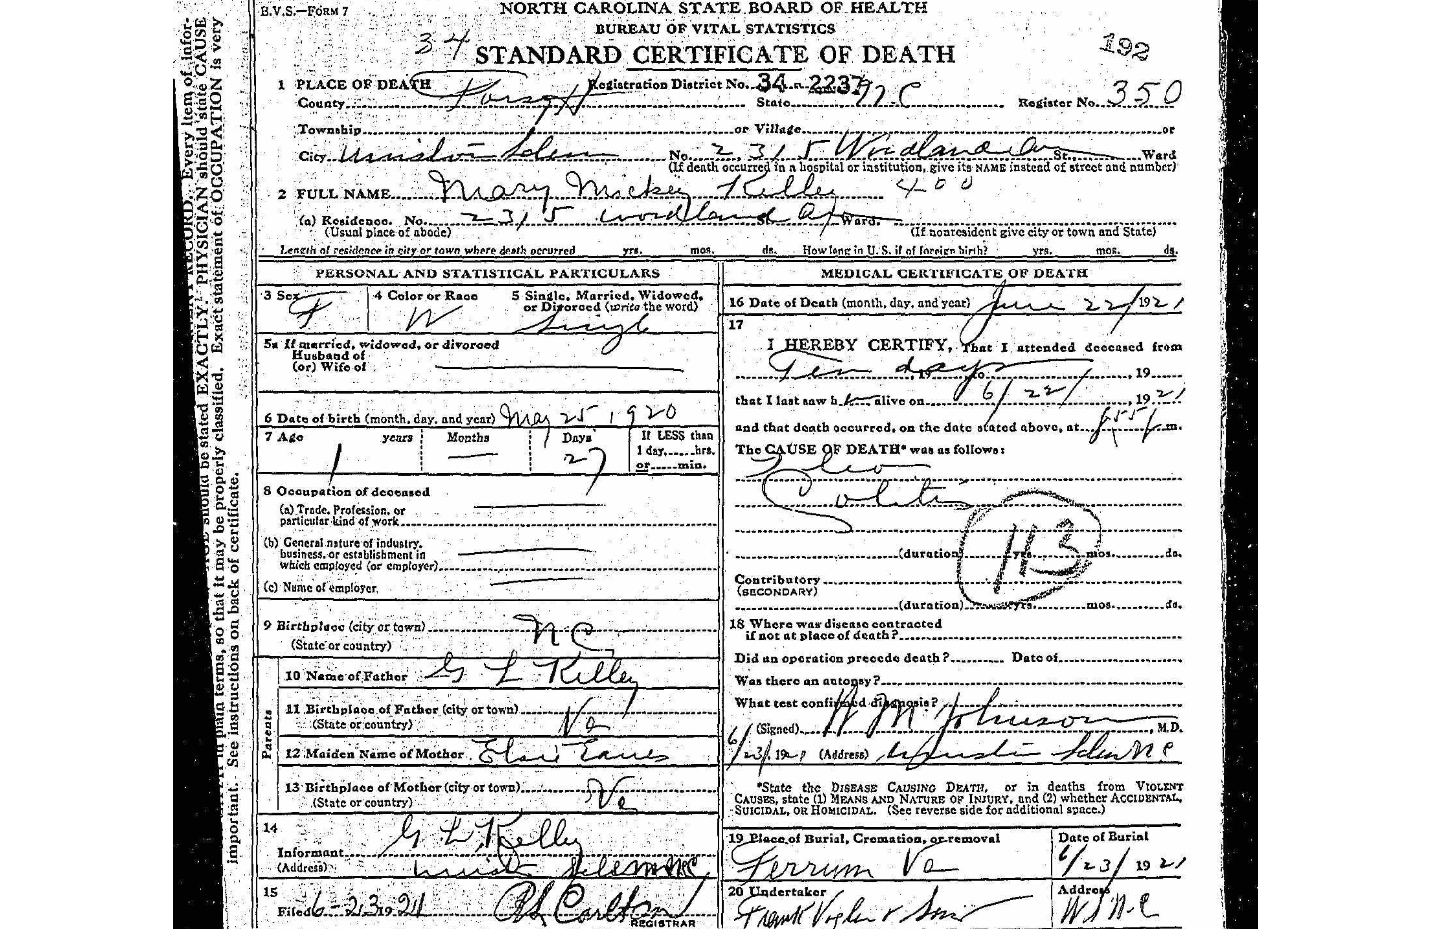 B.V.S.—FORM 7
NORTH CAROLINA STATE BOARD OF HEALTH
BUREAU OF VITAL STATISTICS
34 STANDARD CERTIFICATE OF DEATH
192
1 PLACE OF DEATH Registration District No. 34-2237
County Forsyth State N C Register No. 350
Township or Village or
City Winston Salem No. 2315 Woodland Av St., Ward
(If death occurred in a hospital or institution, give its NAME instead of street and number)
2 FULL NAME Mary Mickey Kelley 400
(a) Residence. No. 2315 Woodland Av Ward.
(Usual place of abode) (If nonresident give city or town and State)
Length of residence in city or town where death occurred yrs. mos. ds. How long in U. S. if of foreign birth? yrs. mos. ds.
PERSONAL AND STATISTICAL PARTICULARS
3 Sex 4 Color or Race 5 Single, Married, Widowed,
or Divorced (write the word)
F W Single
5a If married, widowed, or divorced
Husband of
(or) Wife of
6 Date of birth (month, day, and year) May 25 1920
7 Age years Months Days If LESS than
1 day, hrs.
or min.
1 27
8 Occupation of deceased
(a) Trade, Profession, or
particular kind of work
(b) General nature of industry,
business, or establishment in
which employed (or employer)
(c) Name of employer.
9 Birthplace (city or town) N C
(State or country)
Parents
10 Name of Father G L Kelley
11 Birthplace of Father (city or town)
(State or country) Va
12 Maiden Name of Mother Elsie Eanes
13 Birthplace of Mother (city or town)
(State or country) Va
14
Informant G L Kelley
(Address) Winston Salem NC
15
Filed 6-23 1921 Carlton
REGISTRAR
MEDICAL CERTIFICATE OF DEATH
16 Date of Death (month, day, and year) June 22/1921
17
I HEREBY CERTIFY, That I attended deceased from
Ten days, 19 to , 19
that I last saw h alive on 6/22/, 1921
and that death occurred, on the date stated above, at 655 P m.
The CAUSE OF DEATH* was as follows:
Ileo
Colitis
113
(duration) yrs. mos. ds.
Contributory
(SECONDARY)
(duration) yrs. mos. ds.
18 Where was disease contracted
if not at place of death?
Did an operation precede death? Date of
Was there an autopsy?
What test confirmed diagnosis?
(Signed) W M Johnson, M.D.
6/23, 1921 (Address) Winston Salem N C
*State the DISEASE CAUSING DEATH, or in deaths from VIOLENT
CAUSES, state (1) MEANS AND NATURE OF INJURY, and (2) whether ACCIDENTAL,
SUICIDAL, OR HOMICIDAL. (See reverse side for additional space.)
19 Place of Burial, Cremation, or removal Date of Burial
Ferrum Va 6/23/1921
20 Undertaker Address
Frank Vogler & Sons W S N-C
Every item of infor-
should be stated EXACTLY. PHYSICIAN should state CAUSE
in plain terms, so that it may be properly classified. Exact statement of OCCUPATION is very
important. See instructions on back of certificate.